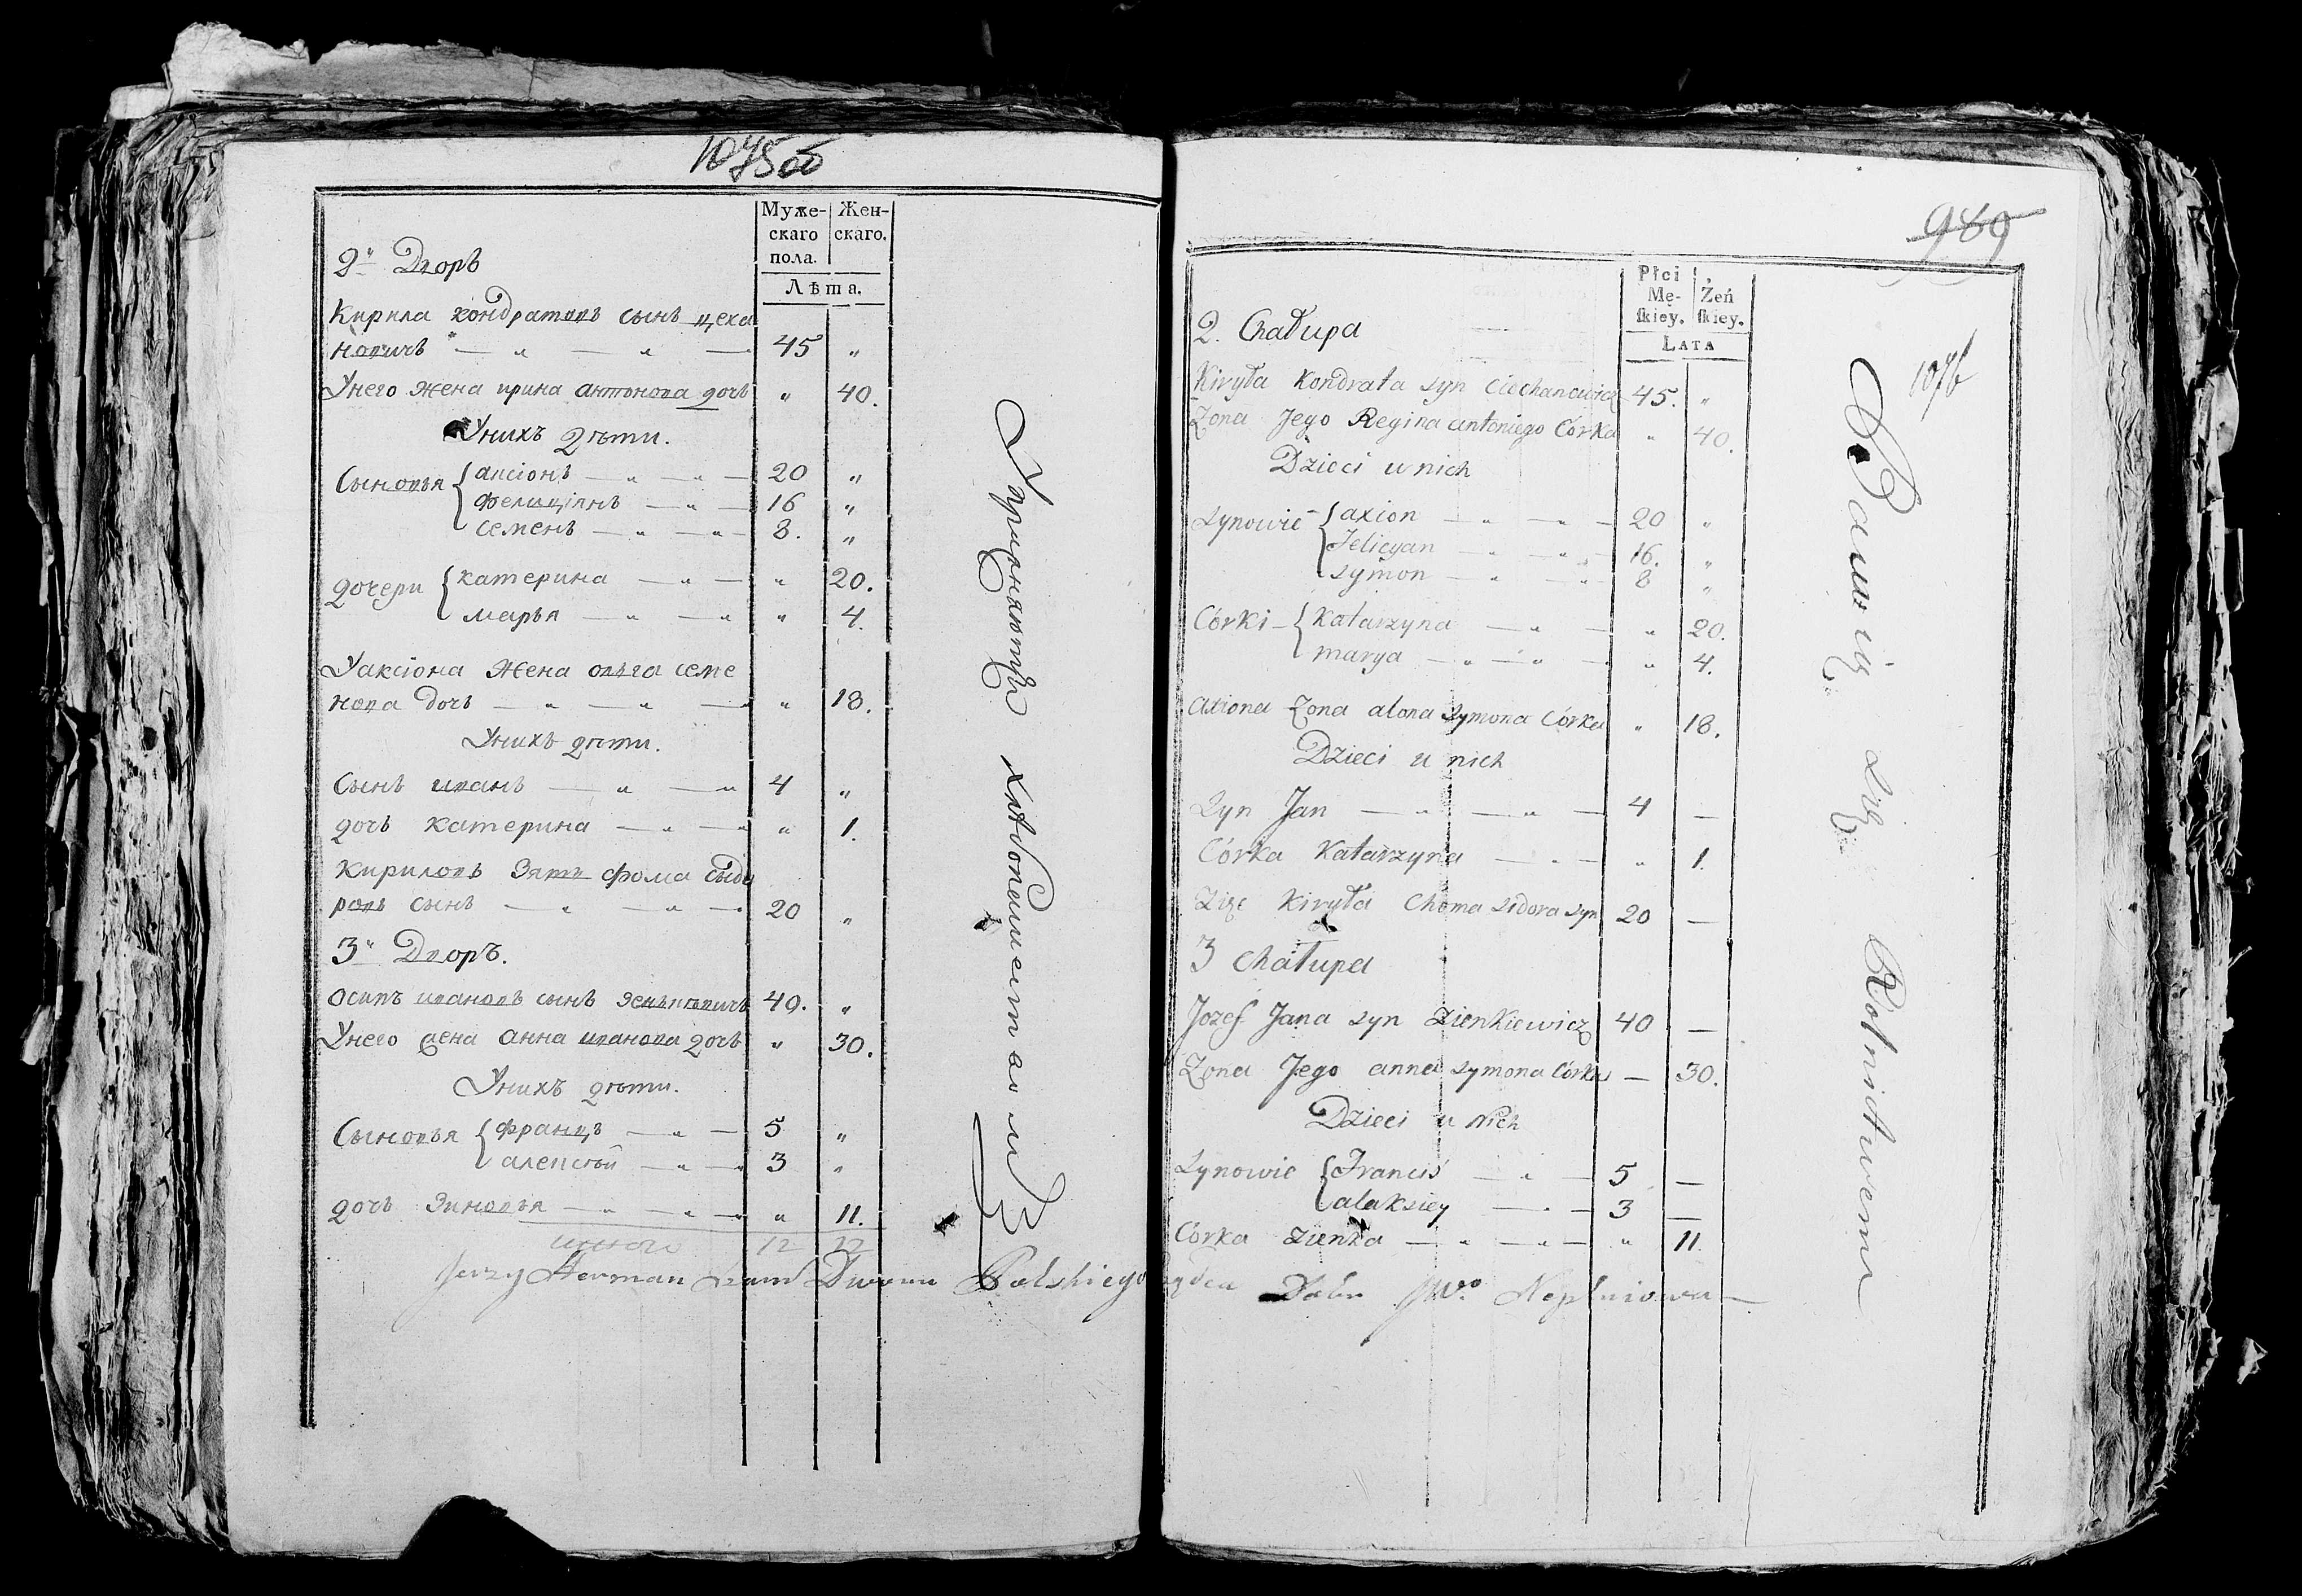 1075 об
Муже-
скаго
пола.
Жен-
скаго.
Лѣта.
2й Дворъ
Кирила кондратовъ сынъ цеха
новичъ — " — " — 45 "
Унего жена ирина антонова дочь " 40.
Унихъ дѣти.
Сыновья { аксіонъ — " — " — 20 "
Фелиціянъ — " — 16 "
семенъ — " — " — 8. "
дочери { катерина — " — " 20.
марья — " — " " 4.
Уаксіона жена ольга семе
нова дочь — " — " — " 18.
Унихъ дѣти.
Сынъ иванъ — " — " 4 "
дочь катерина — " — " " 1.
Кириловъ Зять фома сыдо
ровъ сынъ — " — " — 20 "
3й Дворъ.
осипъ ивановъ сынъ зенькевичъ 40. "
Унего жена анна иванова дочь " 30.
Унихъ дѣти.
Сыновья { францъ — " — 5 "
алексѣй — " — " 3 "
дочь Зиновья — " — " — " " 11.
итого 12 12
Упражняются хлебопашеством
Jerzy Herman Dwora Polskiego
989
1076
Płci
Mę-
ſkiey.
Żeń
ſkiey.
LATA
2. Chałupa
Kiryła Kondrata syn Ciechanowicz 45. "
Zona Jego Regina antoniego Córka " 40.
Dzieci u nich
Synowie { axion — " — " — 20 "
Felicyan — " — " — 16. "
symon — " — " 8 "
Córki — { Katarzyna — " — " 20.
marya — " — " — " 4.
axiona Zona alona symona Córka " 18.
Dzieci u nich
Syn Jan — " — " — 4 —
Córka Katarzyna — " — " 1.
Zięć Kiryła Choma sidora syn 20 —
3 Chałupa
Jozef Jana syn Zienkiewicz 40 —
Zona Jego anna symona Córka — 30.
Dzieci u Nich
Synowie { Franciś — " — 5 —
alaksiey — " — 3 —
Córka Zienka — " — " — " 11.
Dobr JWo
Bawią się Rolnictwem